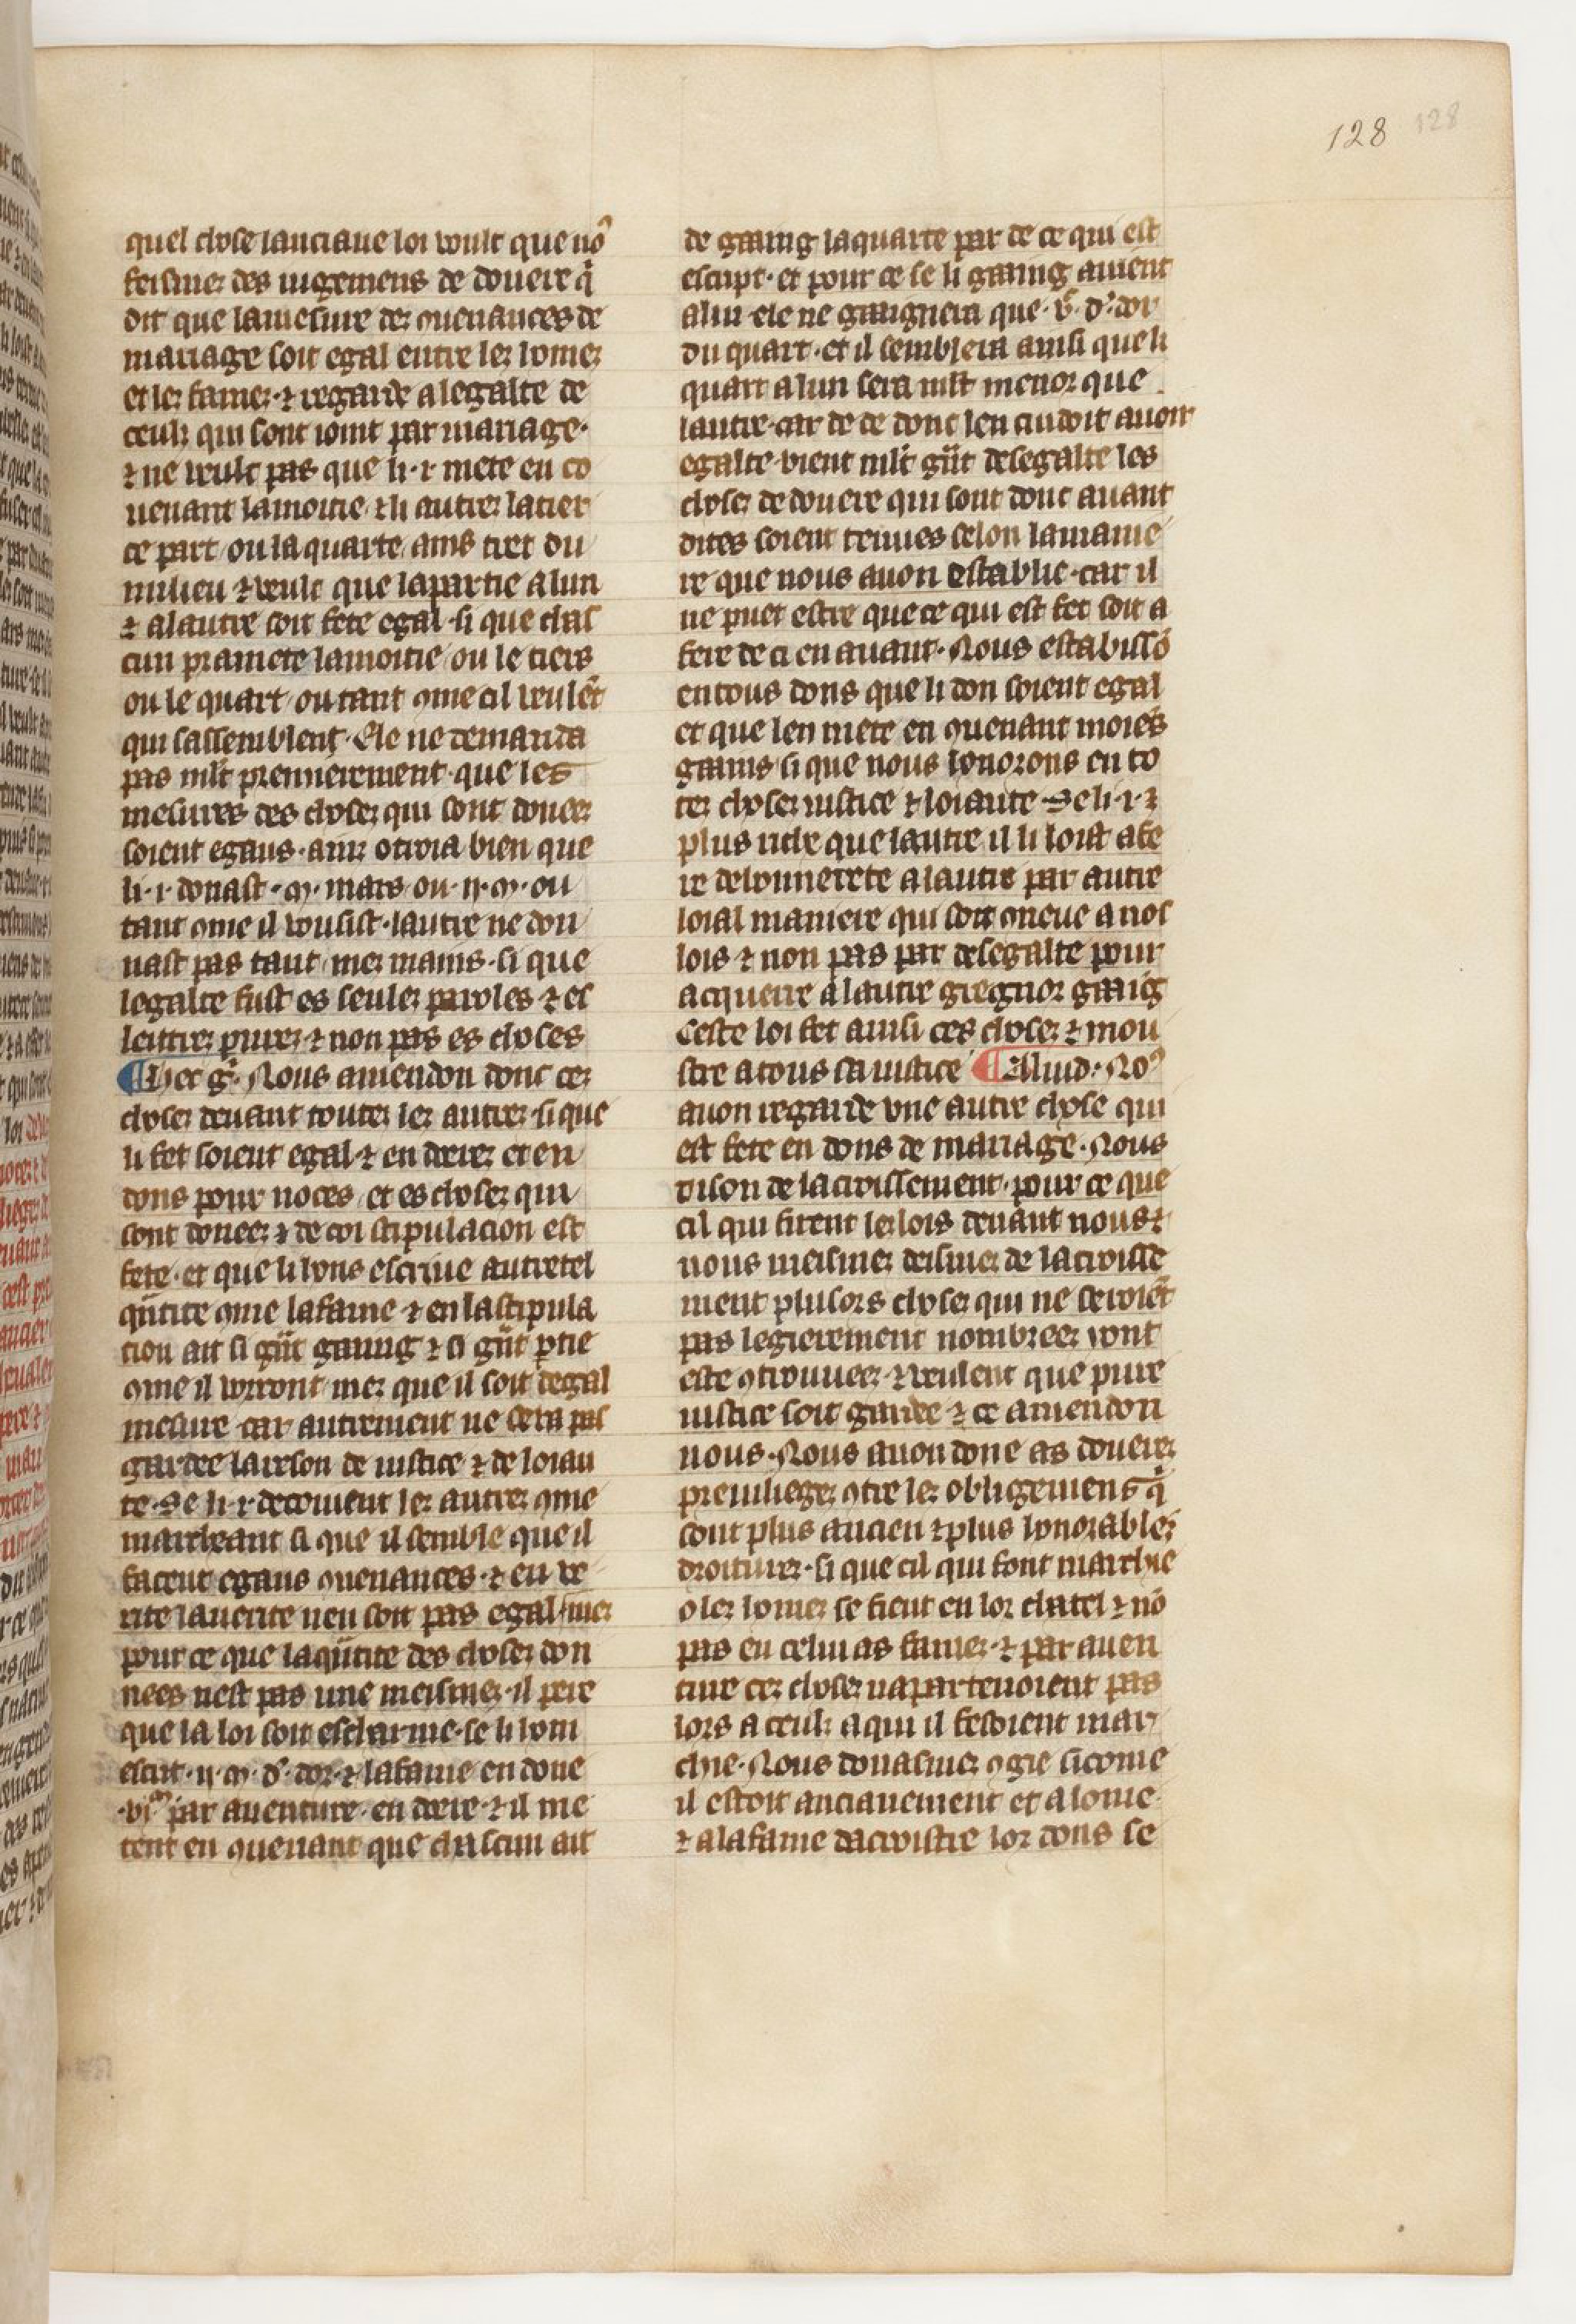 128 128
quel chose lanciane loi voult que nõ
feisme des iugemens de douere q̃
dit que lamesure des ꝯuenances de
mariage soit egal entre les homes
et les fames ⁊ regarde alegalte de
ceuls qui sont ioint par mariage.
⁊ ne veult pas que li .i. mete en co
uenant lamoitie ⁊ li autres latier
ce part ou la quarte ains tret du
milieu ⁊ veult que lapartie alun
⁊ alautre soit fete egal si que chas
cun pramete lamoitie ou le tiers
ou le quart ou tant ꝯme cil veulẽt
qui sassemblent. Ele ne demanda
pas mlt̃ premierement que les
mesures des choses qui sont donees
soient egaus. ains otroia bien que
li .i. donast .m. mars ou .ii. m. ou
tant ꝯme il vousist. lautre ne don
nast pas tant mes mains. si que
legalte fust es seules paroles ⁊ es
lettres pures ⁊ non pas es choses
¶ Hec g̃. Nous amendon donc ces
choses deuant toutes les autres si que
li fet soient egal ⁊ en doeres et en
dons pour noces et es choses qui
sont donees ⁊ de coi stipulacion est
fete. et que li hons escriue autretel
qũtite ꝯme lafame ⁊ en lastipula
tion ait si gñt gaaing ⁊ si gñt ꝑtie
ꝯme il vorront mes que il soit degal
mesure car autrement ne sera pas
gardee lareson de iustice ⁊ de loiau
te. Se li .i. decoiuent les autres ꝯme
marcheant si que il semble que il
facent egaus ꝯuenances. ⁊ en ve
rite lauerite nen soit pas egal mes
pour ce que laqũtite des choses don
nees nest pas une meismes. il pere
que la loi soit escharnie. se li hom
escrit .ii. m. d'. dor. ⁊ lafame en done
.vi.ᵐ par auenture. en doere. ⁊ il me
tent en ꝯuenant que chascun ait
de gaaing laquarte par de ce qui est
escript. et pour ce se li gaaing auient
alui ele ne gaaignera que .v.ᶜ. d'. dor
du quart. et il semblera ausi que li
quart alun sera mlt̃ menor que
lautre. car de ce dont len cuidoit auoir
egalte vient mlt̃ gñt desegalte les
choses de douere qui sont donc auant
dites soient tenues selon lamanie
re que nous auon establie. car il
ne puet estre que ce qui est fet soit a
fere de ci en auant. Nous establissõ
en tous dons que li don soient egal
et que len mete en ꝯuenant moiẽs
gaains si que nous honorons en to
tes choses iustice ⁊ loiaute. Se li .i. ⁊
plus riche que lautre il li loist afe
re delonnerete alautre par autre
loial maniere qui soit ꝯneue a nos
lois ⁊ non pas par desegalte pour
acquerre alautre gregnor gaaig
Ceste loi fet ausi ces choses ⁊ mou
stre a tous sa iustice ¶ Aliud. Noꝰ
auon regarde vne autre chose qui
est fete en dons de mariage. Nous
dison de lacroissement. pour ce que
cil qui firent les lois deuant nous ⁊
nous meismes deismes de lacroisse
ment plusors choses qui ne seroiẽt
pas legierement nombrees sont
este ꝯtrouuees. ⁊ veulent que pure
iustice soit gardee ⁊ ce amendon
nous. Nous auon done as doueres
preuileges ꝯtre les obligemens q̃
sont plus ancien ⁊ plus honorables
droitures. si que cil qui font marchie
o les homes se fient en lor chatel ⁊ nõ
pas en celui as fames. ⁊ par auen
ture ces choses napartenoient pas
lors a ceuls a qui il fesoient mar
chie. Nous donasmes ꝯgie si come
il estoit ancianement et a lome
⁊ alafame dacroistre lor dons se